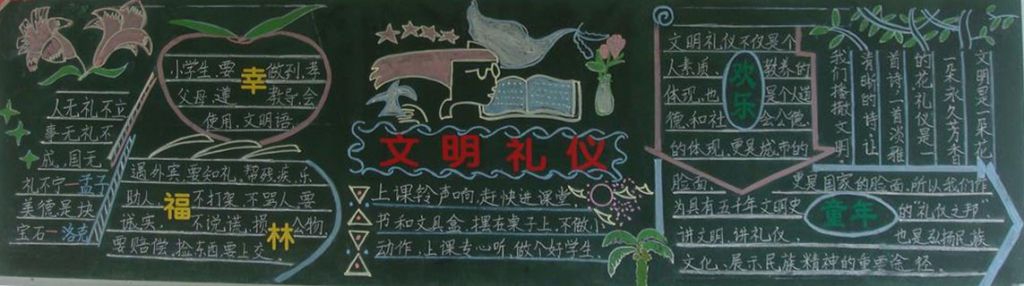 人无礼不立
事无礼不
成,国无
礼不宁—孟子
美德是块
宝石—洛克
小学生要 做到,孝
父母,道 教导,会
使用文明语
幸
遇外宾要知礼,帮残疾乐
助人 不打架不骂人要
诚实 不说谎,损 公物
要赔偿,捡东西要上交
福
林
文明礼仪
上课铃声响,赶快进课堂
书和文具盒,摆在桌子上,不做小
动作,上课专心听,做个好学生
文明礼仪不仅是个
人素质、教养的
体现,也是个人道
德和社会公德
的体现,更是城市的
脸面,更是国家的脸面,所以我们作
为具有五千年文明史的“礼仪之邦”
讲文明,讲礼仪,也是弘扬民族
文化、展示民族精神的重要途径.
欢乐
童年
文明是一朵花
一朵永久芬香
的花,礼仪是
一首诗,一首淡雅
清晰的诗,让
我们播撒文明